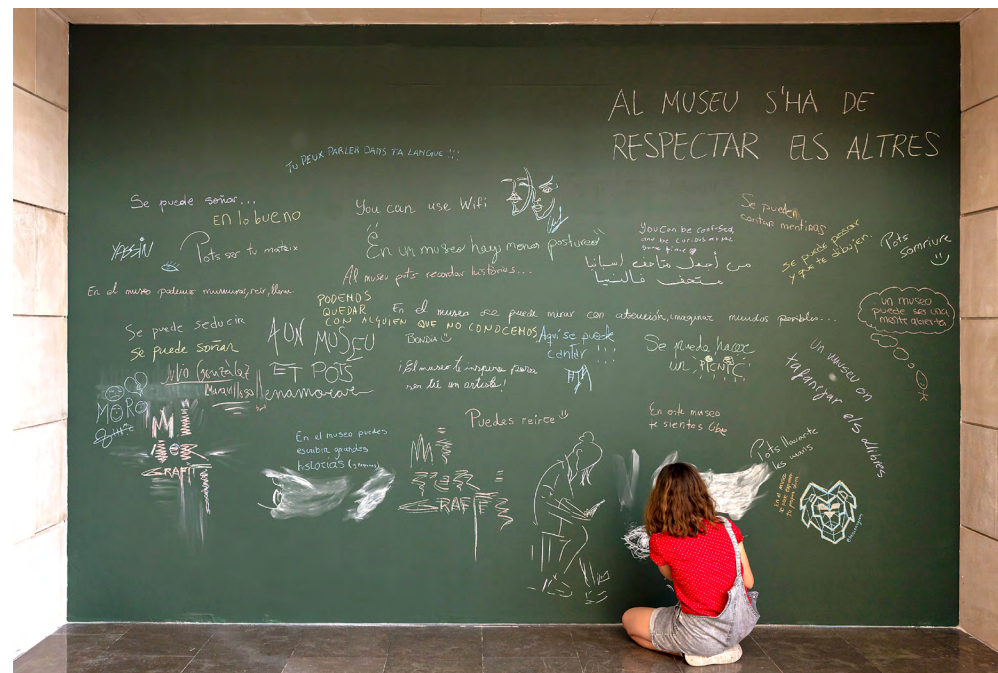 AL MUSEU S'HA DE
RESPECTAR ELS ALTRES
TU PEUX PARLER DANS TA LANGUE !!!
Se puede soñar...
EN lo bueno
You can use Wifi
Se pueden
contar mentiras
YASSIN
Pots ser tu mateix
"En un museo hay menos postureo"
You can be confused
and be curious at the
same time
من أجمل متاحف إسبانيا
متحف فالنسيا
se puede posar
y que te dibujen.
Pots
somriure
Al museu pots recordar històries...
En el museo podemos murmurar, reir, llorar
PODEMOS
QUEDAR
CON ALGUIEN QUE NO CONOCEMOS
En el museo se puede mirar con atención, imaginar mundos posibles...
un museo
puede ser una
mente abierta
Se puede seducir
se puede soñar
A UN MUSEU
ET POTS
enamorar
BONDIA
Aquí se puede
cantar !!!
Se puede hacer
UN PICNIC
¡El museo te inspira para
ser tú un artista!
Un museu on
tafanejar els llibres
Julio González
Maravilloso
MORO
Puedes reirte
En este museo
te sientes libre
MI
SER
GRAFIT
En el museo puedes
escribir grandes
historias
MI
SER
GRAFIT
Pots llavarte
les mans
En el museo